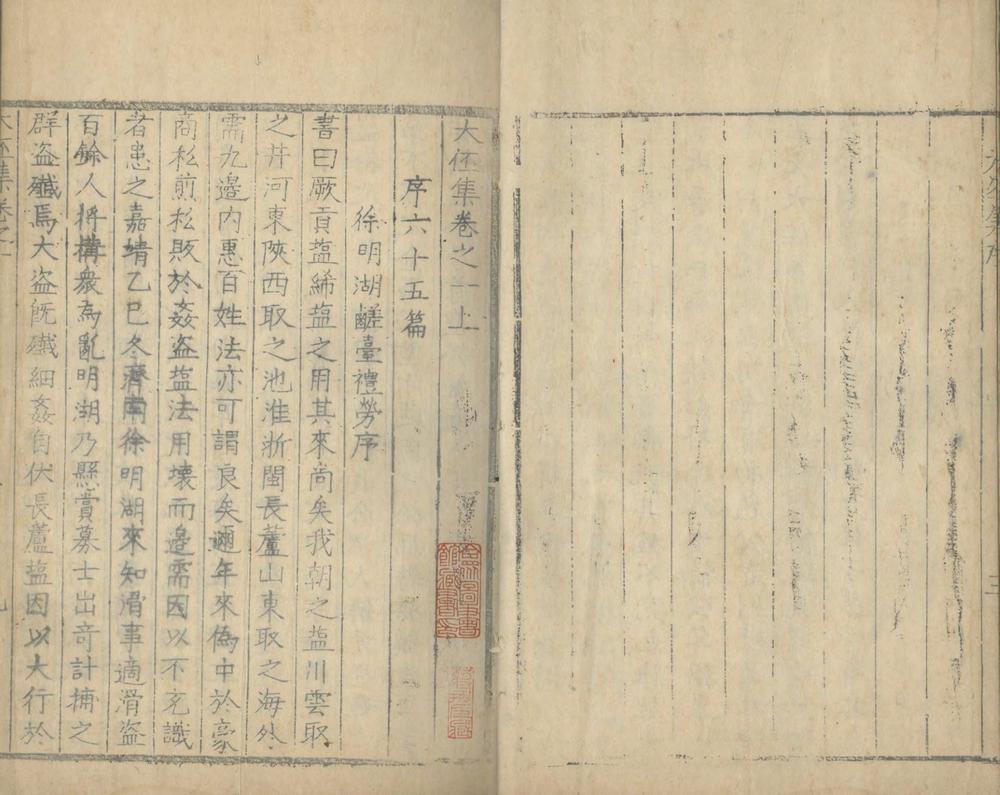 三
大伾集卷之一上
序六十五篇
徐明湖鹺臺禮勞序
書曰厥貢塩絺塩之用其來尚矣我朝之塩川雲取
之井河東陝西取之池淮浙閩長蘆山東取之海外
需九邊内惠百姓法亦可謂良矣邇年來偽中於豪
商松煎松販於姦盗塩法用壊而邉需因以不充識
者患之嘉靖乙巳冬濟南徐明湖來知滑事適滑盗
百餘人将搆衆為亂明湖乃懸賞募士出竒計捕之
群盗殱焉大盗旣殱細姦自伏長蘆塩因以大行於
大伾集卷之一